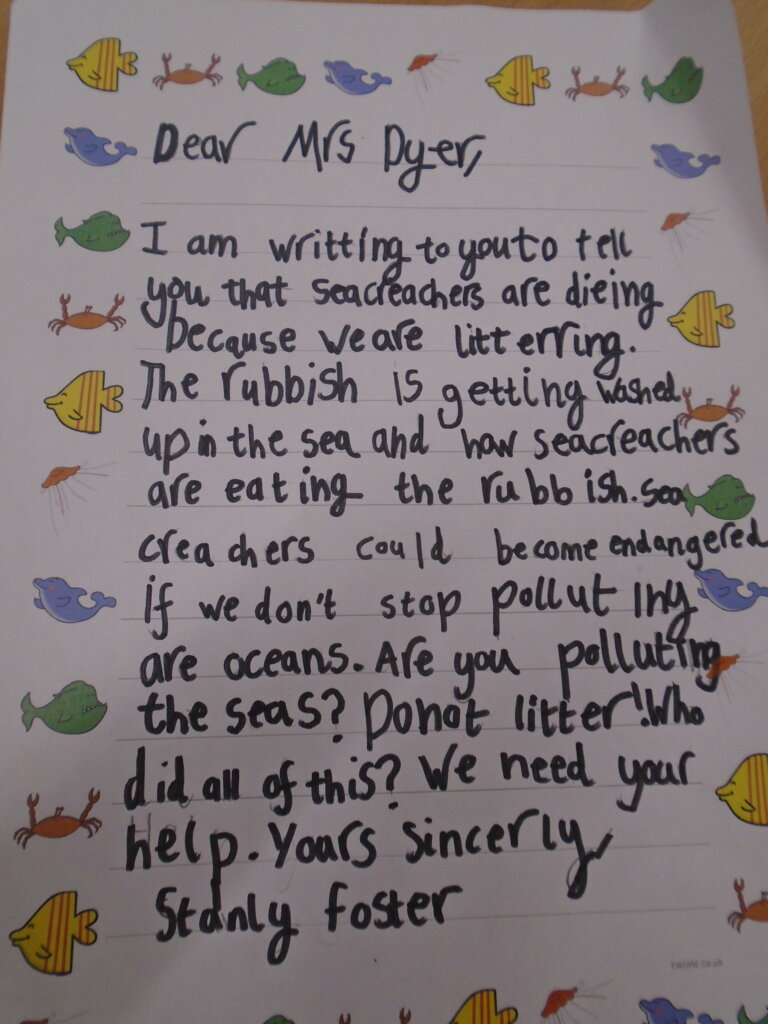 Dear Mrs Dyer,
I am writting to you to tell
you that seacreachers are dieing
because we are litterring.
The rubbish is getting washed
up in the sea and now seacreachers
are eating the rubbish. Sea
creachers could become endangered
if we don't stop polluting
are oceans. Are you polluting
the seas? Do not litter! Who
did all of this? We need your
help. Yours sincerly,
Stanly foster
twinkl.co.uk